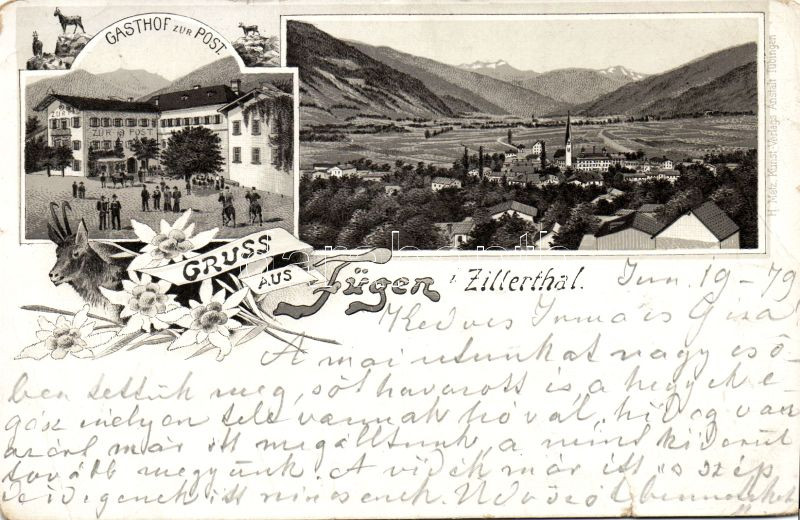 GASTHOF ZUR POST.
ZUR POST
H. Metz, Kunst-Verlags-Anstalt Tübingen
GRUSS
AUS
Fügen i. Zillerthal.
Jun. 19 - 79
Kedves Irma és Giza
A mai utunkat nagy eső-
ben tettük meg, sőt havazott is a hegyek e-
gész mélyen tele vannak hóval, hideg van
azért már itt megálltunk, a mint kiderül
tovább megyünk. A vidék már itt is szép
de idegenek itt nincsenek. Üdvözöl benneteket